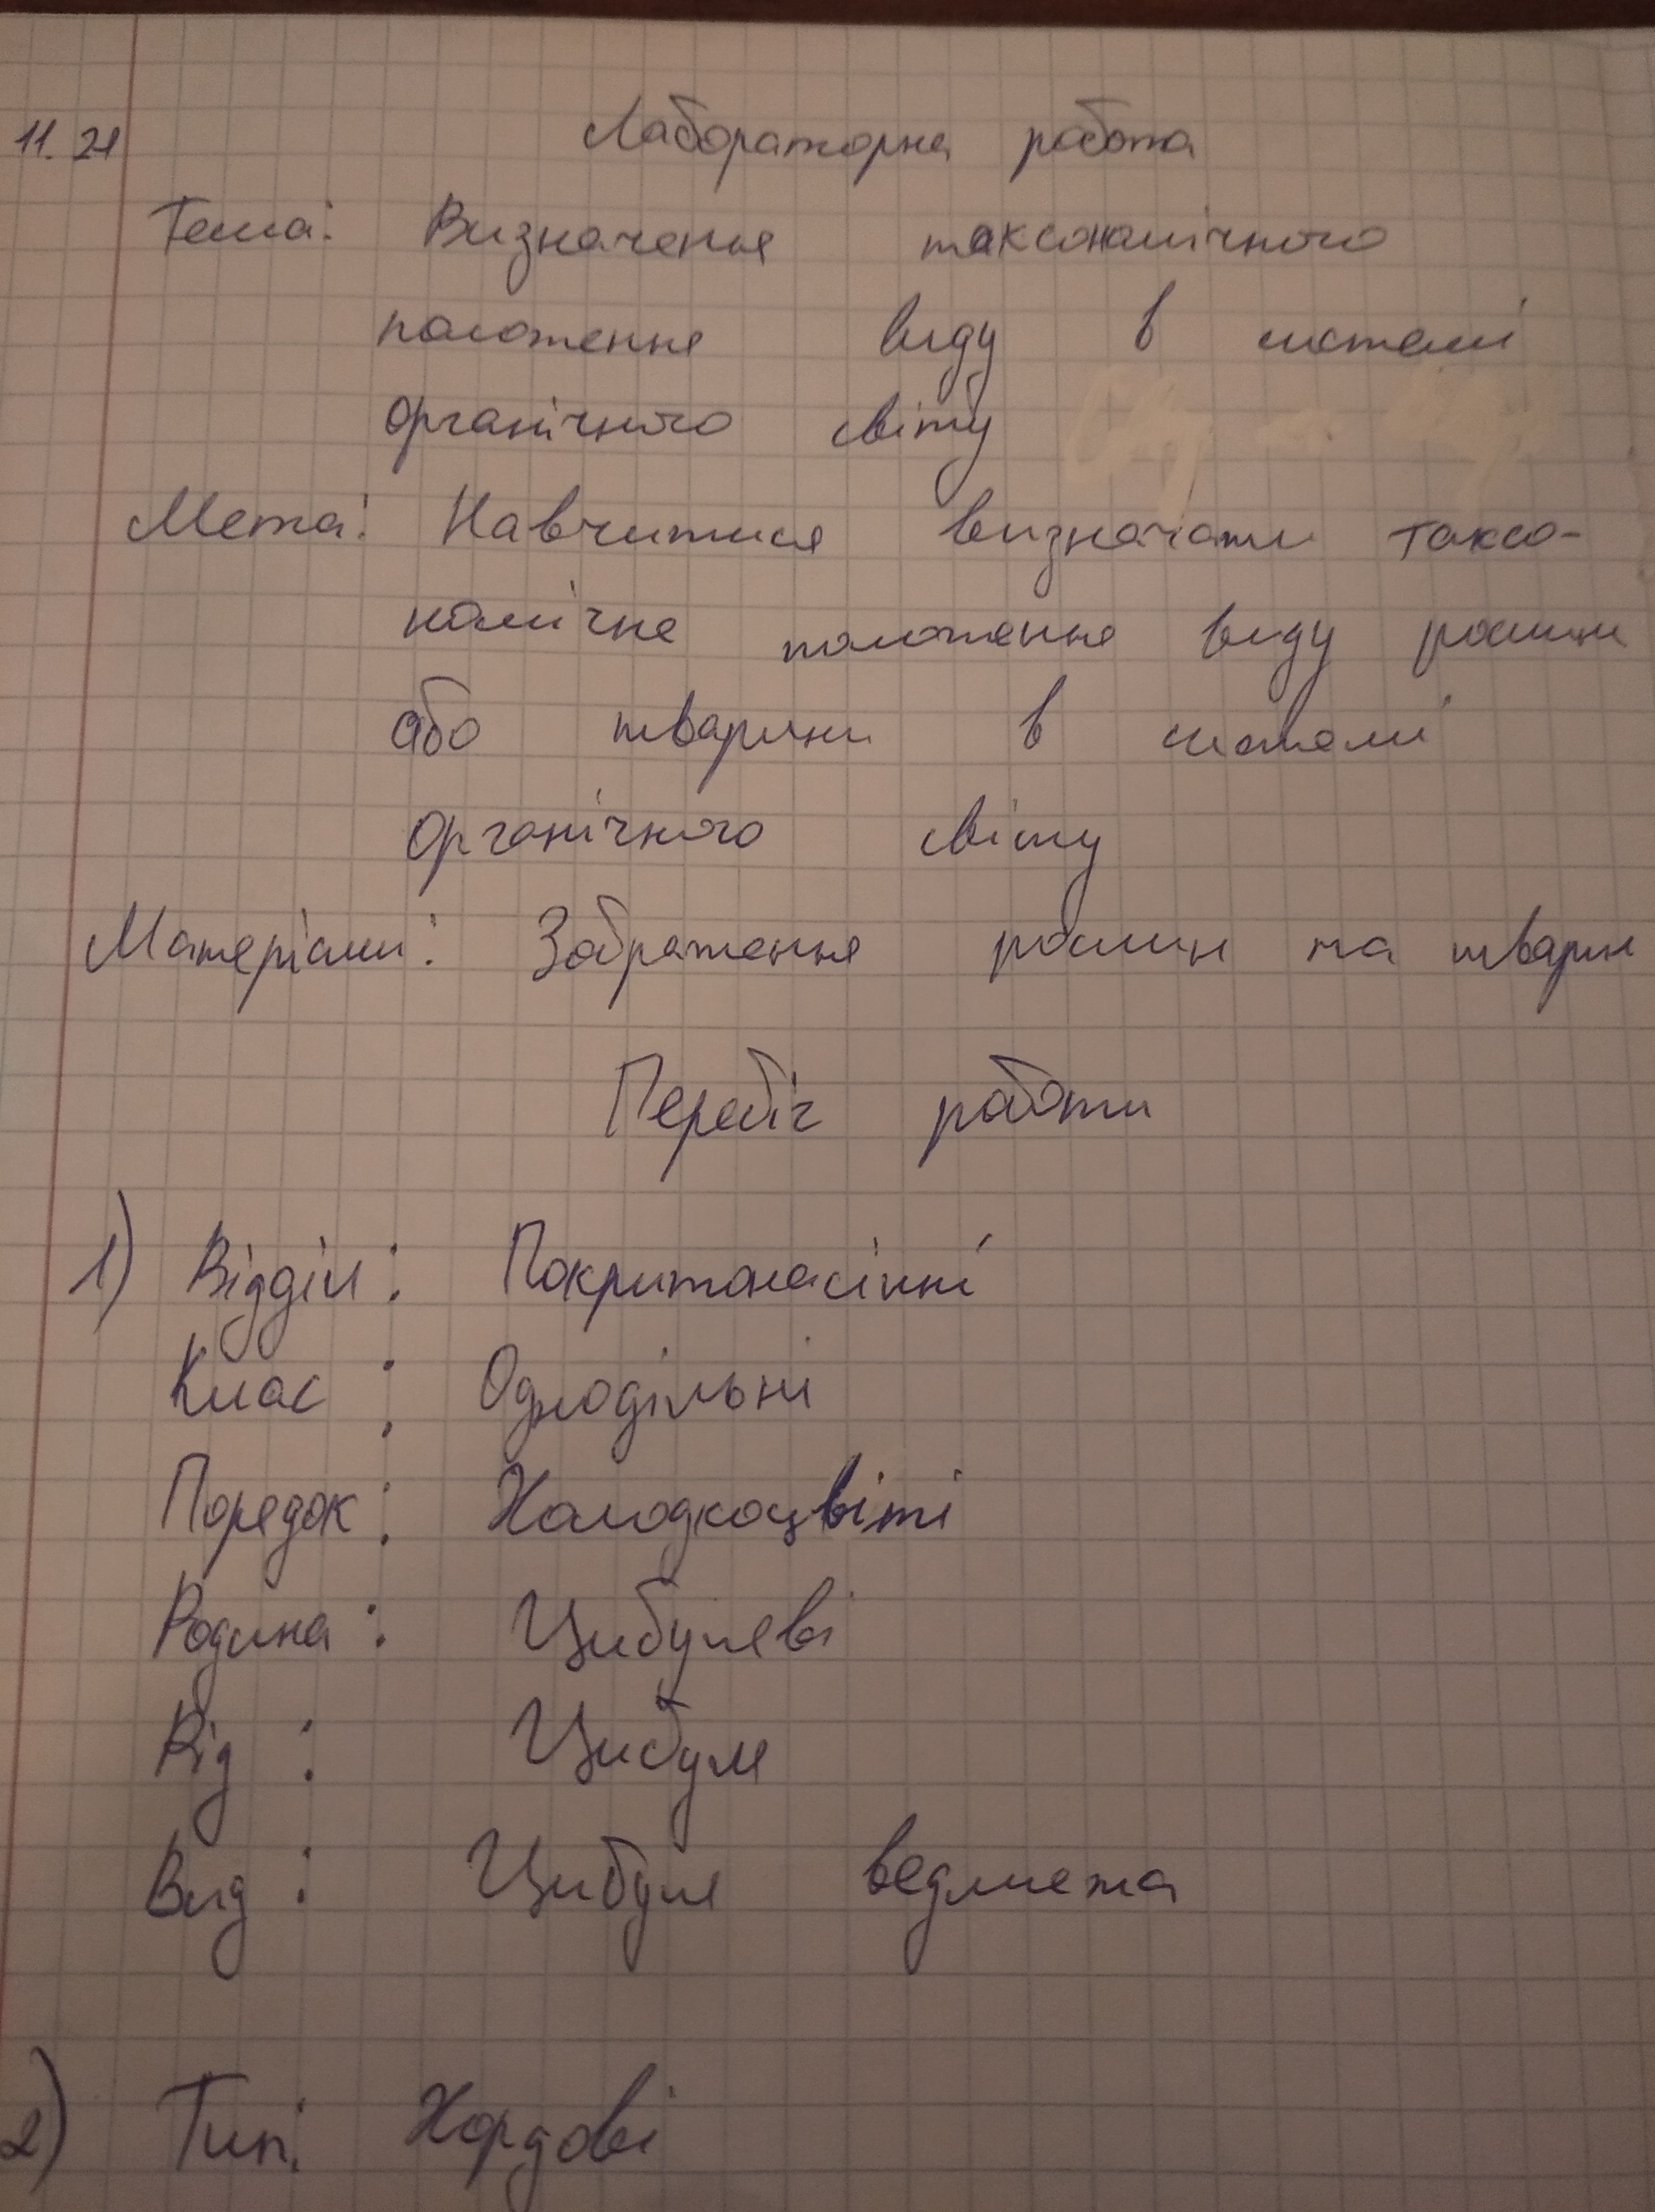 11.21 Лабораторна робота
Тема: Визначення таксономічного
положення виду в системі
органічного світу
Мета: Навчитися визначати таксо-
номічне положення виду рослини
або тварини в системі
органічного світу
Матеріали: Зображення рослин та тварин
Перебіг роботи
1) Відділ: Покритонасінні
Клас : Однодільні
Порядок: Холодкоцвіті
Родина: Цибулеві
Рід : Цибуля
Вид : Цибуля ведмежа
2) Тип: Хордові